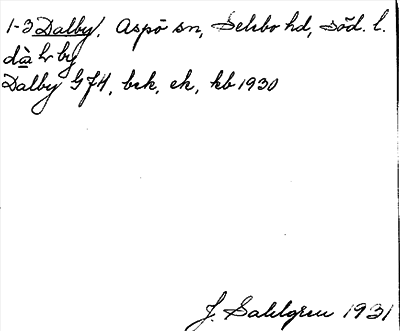 1-3 Dalby, Aspö sn, Selebo hd, Söd. l.
dà lr by
Dalby GJ4, bek, ek, kb 1930
J. Sahlgren 1931